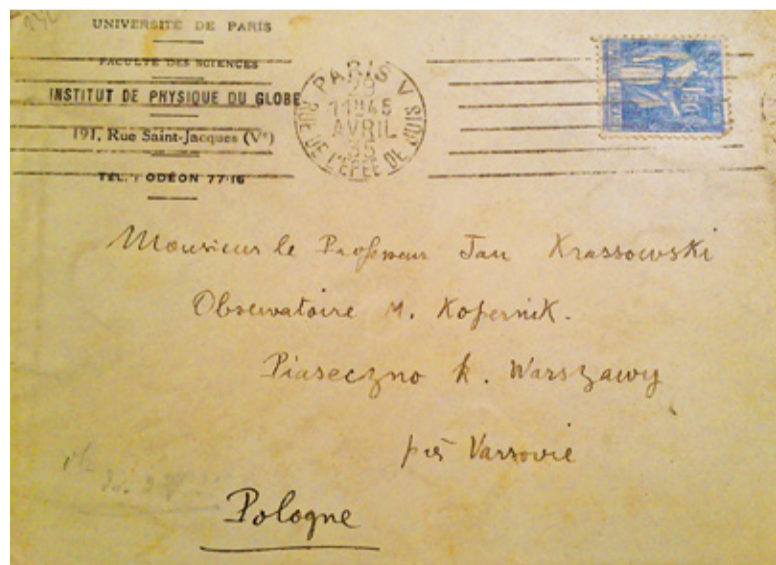 UNIVERSITÉ DE PARIS
FACULTÉ DES SCIENCES
INSTITUT DE PHYSIQUE DU GLOBE
191, Rue Saint-Jacques (Vᵉ)
TÉL. : ODÉON 77-16
PARIS V
29
11H45
AVRIL
35
RUE DE L'ÉPÉE DE
Monsieur le Professeur Jan Krassowski
Observatoire M. Kopernik.
Piaseczno k. Warszawy
près Varsovie
Pologne